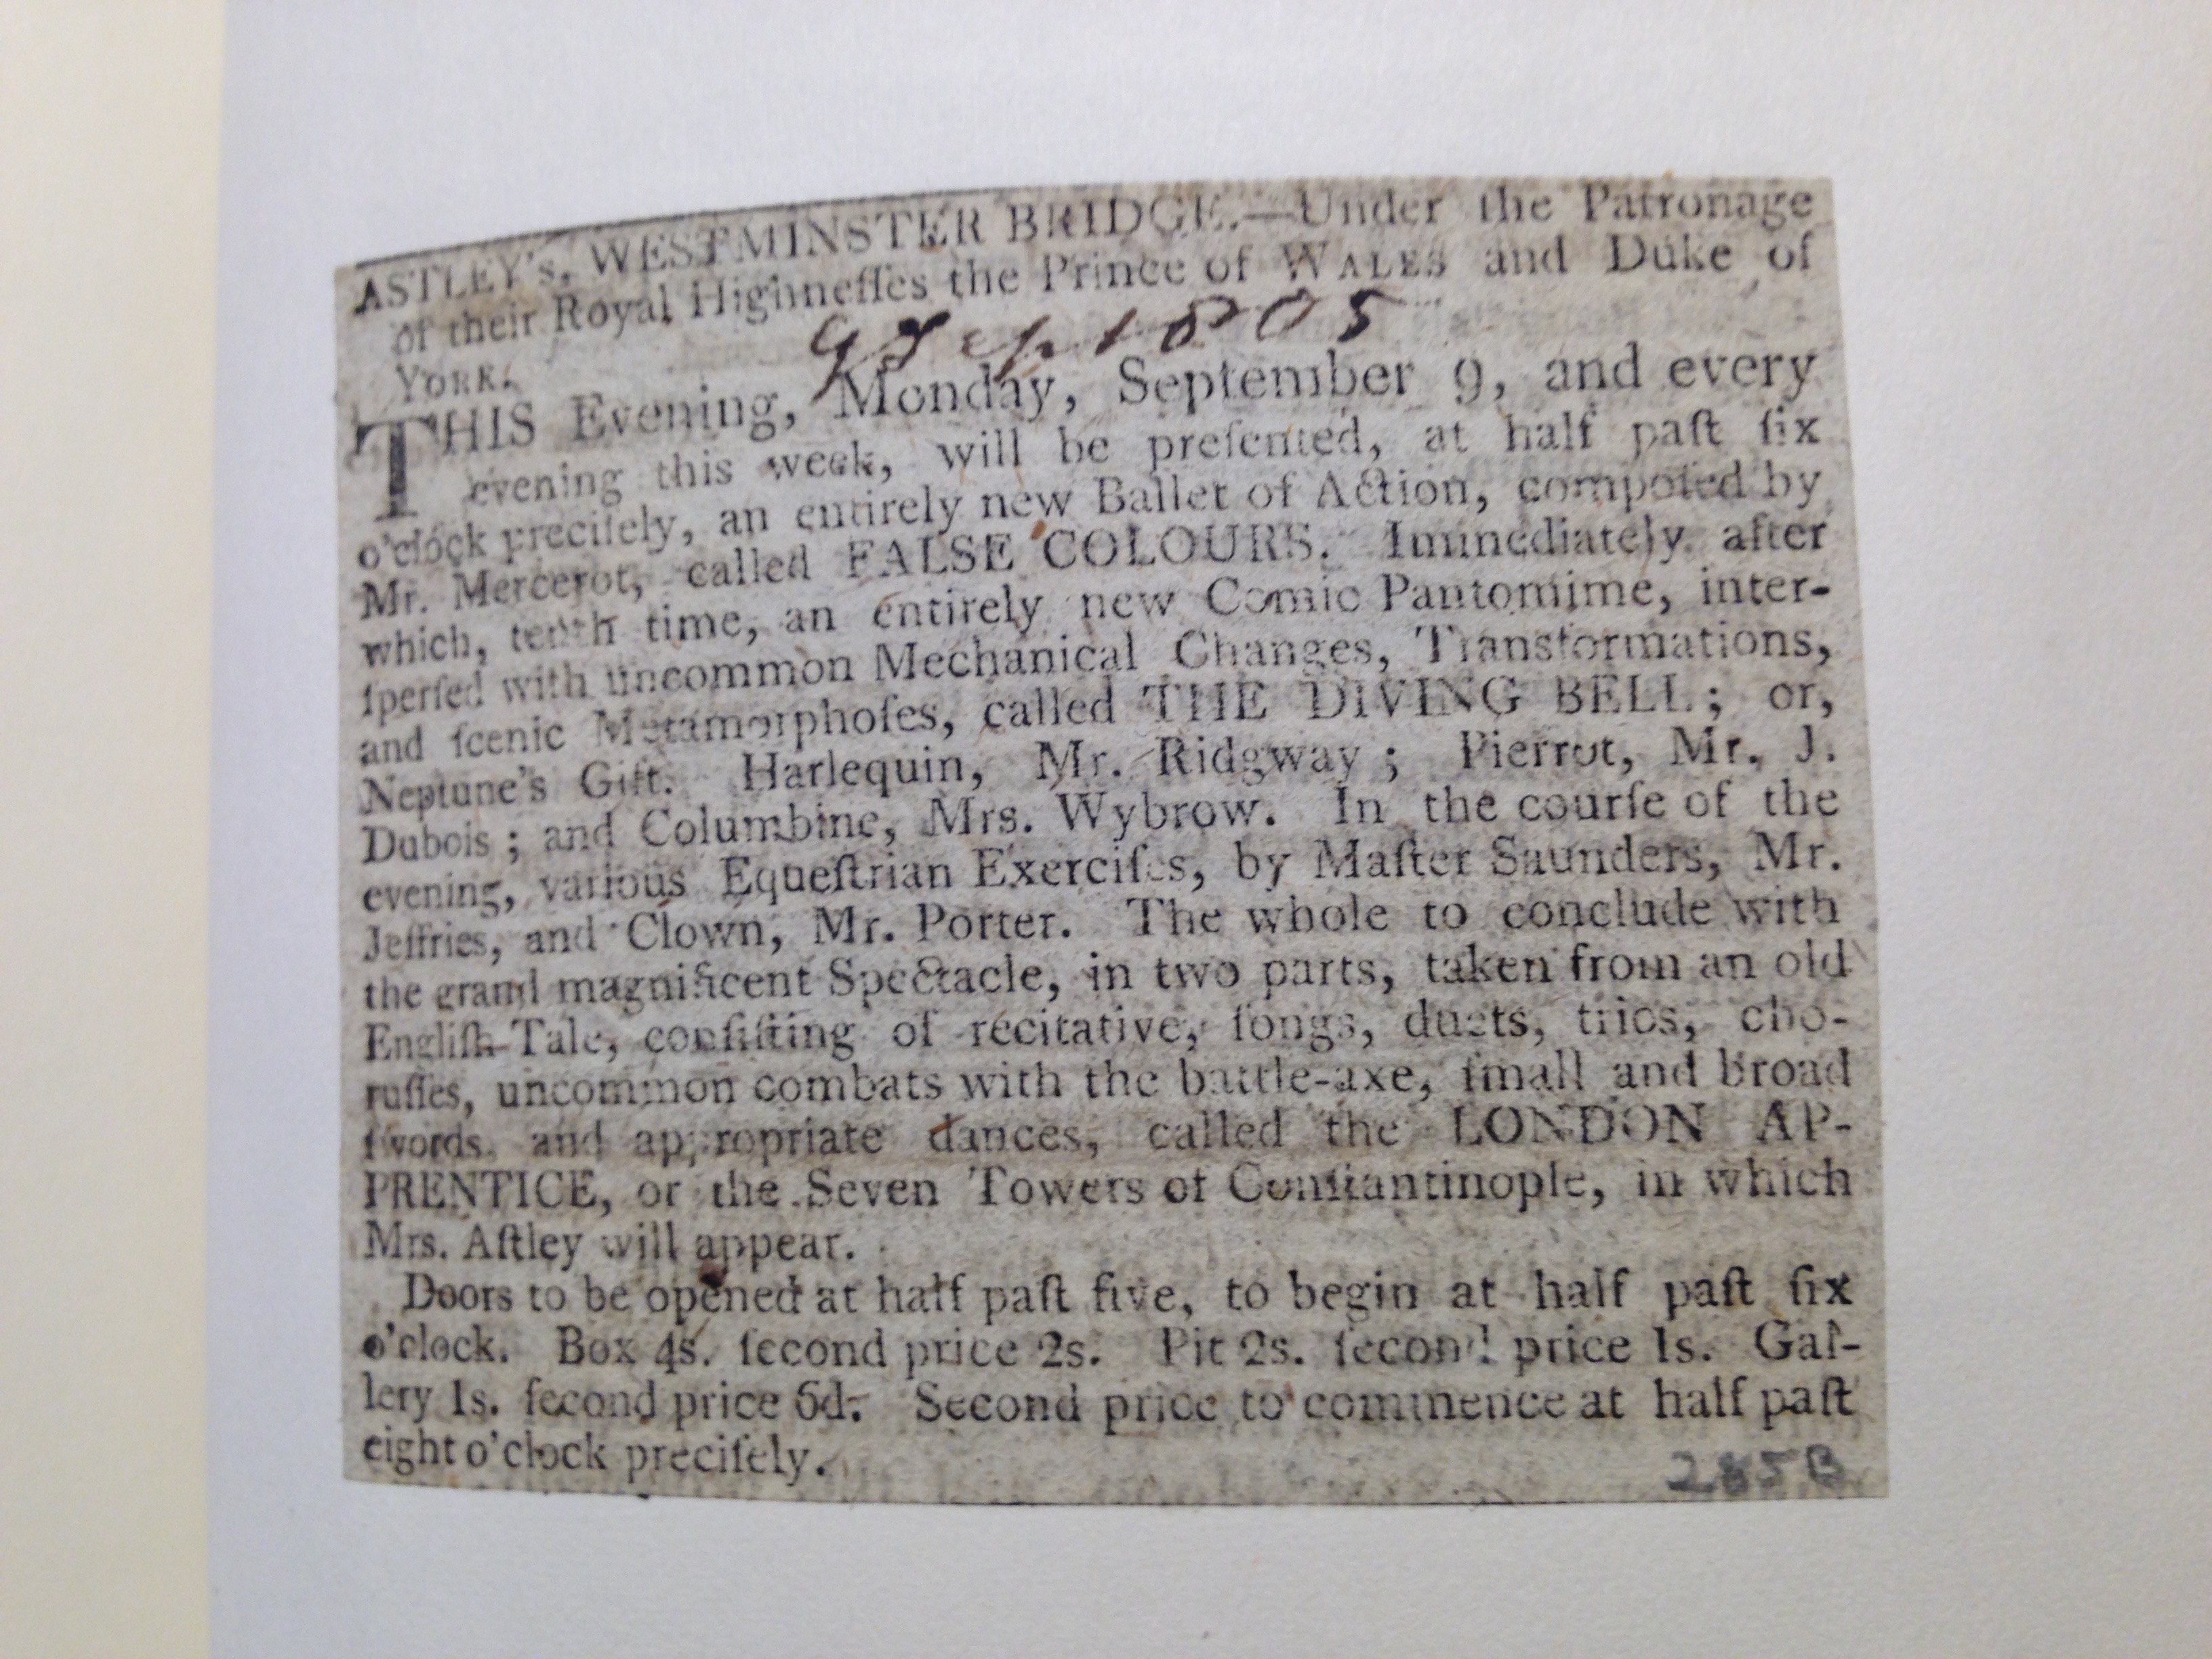 ASTLEY's, WESTMINSTER BRIDGE.—Under the Patronage
of their Royal Highneſſes the Prince of WALES and Duke of
YORK.
9 Sep 1805
THIS Evening, Monday, September 9, and every
evening this week, will be preſented, at half paſt ſix
o'clock preciſely, an entirely new Ballet of Action, compoſed by
Mr. Mercerot, called FALSE COLOURS. Immediately after
which, tenth time, an entirely new Comic Pantomime, inter-
ſperſed with uncommon Mechanical Changes, Transformations,
and ſcenic Metamorphoſes, called THE DIVING BELL; or,
Neptune's Gift. Harlequin, Mr. Ridgway; Pierrot, Mr. J.
Dubois; and Columbine, Mrs. Wybrow. In the courſe of the
evening, various Equeſtrian Exerciſes, by Maſter Saunders, Mr.
Jeffries, and Clown, Mr. Porter. The whole to conclude with
the grand magnificent Spectacle, in two parts, taken from an old
Engliſh Tale, conſiſting of recitative, ſongs, duets, trios, cho-
ruſſes, uncommon combats with the battle-axe, ſmall and broad
ſwords, and appropriate dances, called the LONDON AP-
PRENTICE, or the Seven Towers of Conſtantinople, in which
Mrs. Aſtley will appear.
Doors to be opened at half paſt five, to begin at half paſt ſix
o'clock. Box 4s. ſecond price 2s. Pit 2s. ſecond price 1s. Gal-
lery 1s. ſecond price 6d. Second price to commence at half paſt
eight o'clock preciſely.
285B